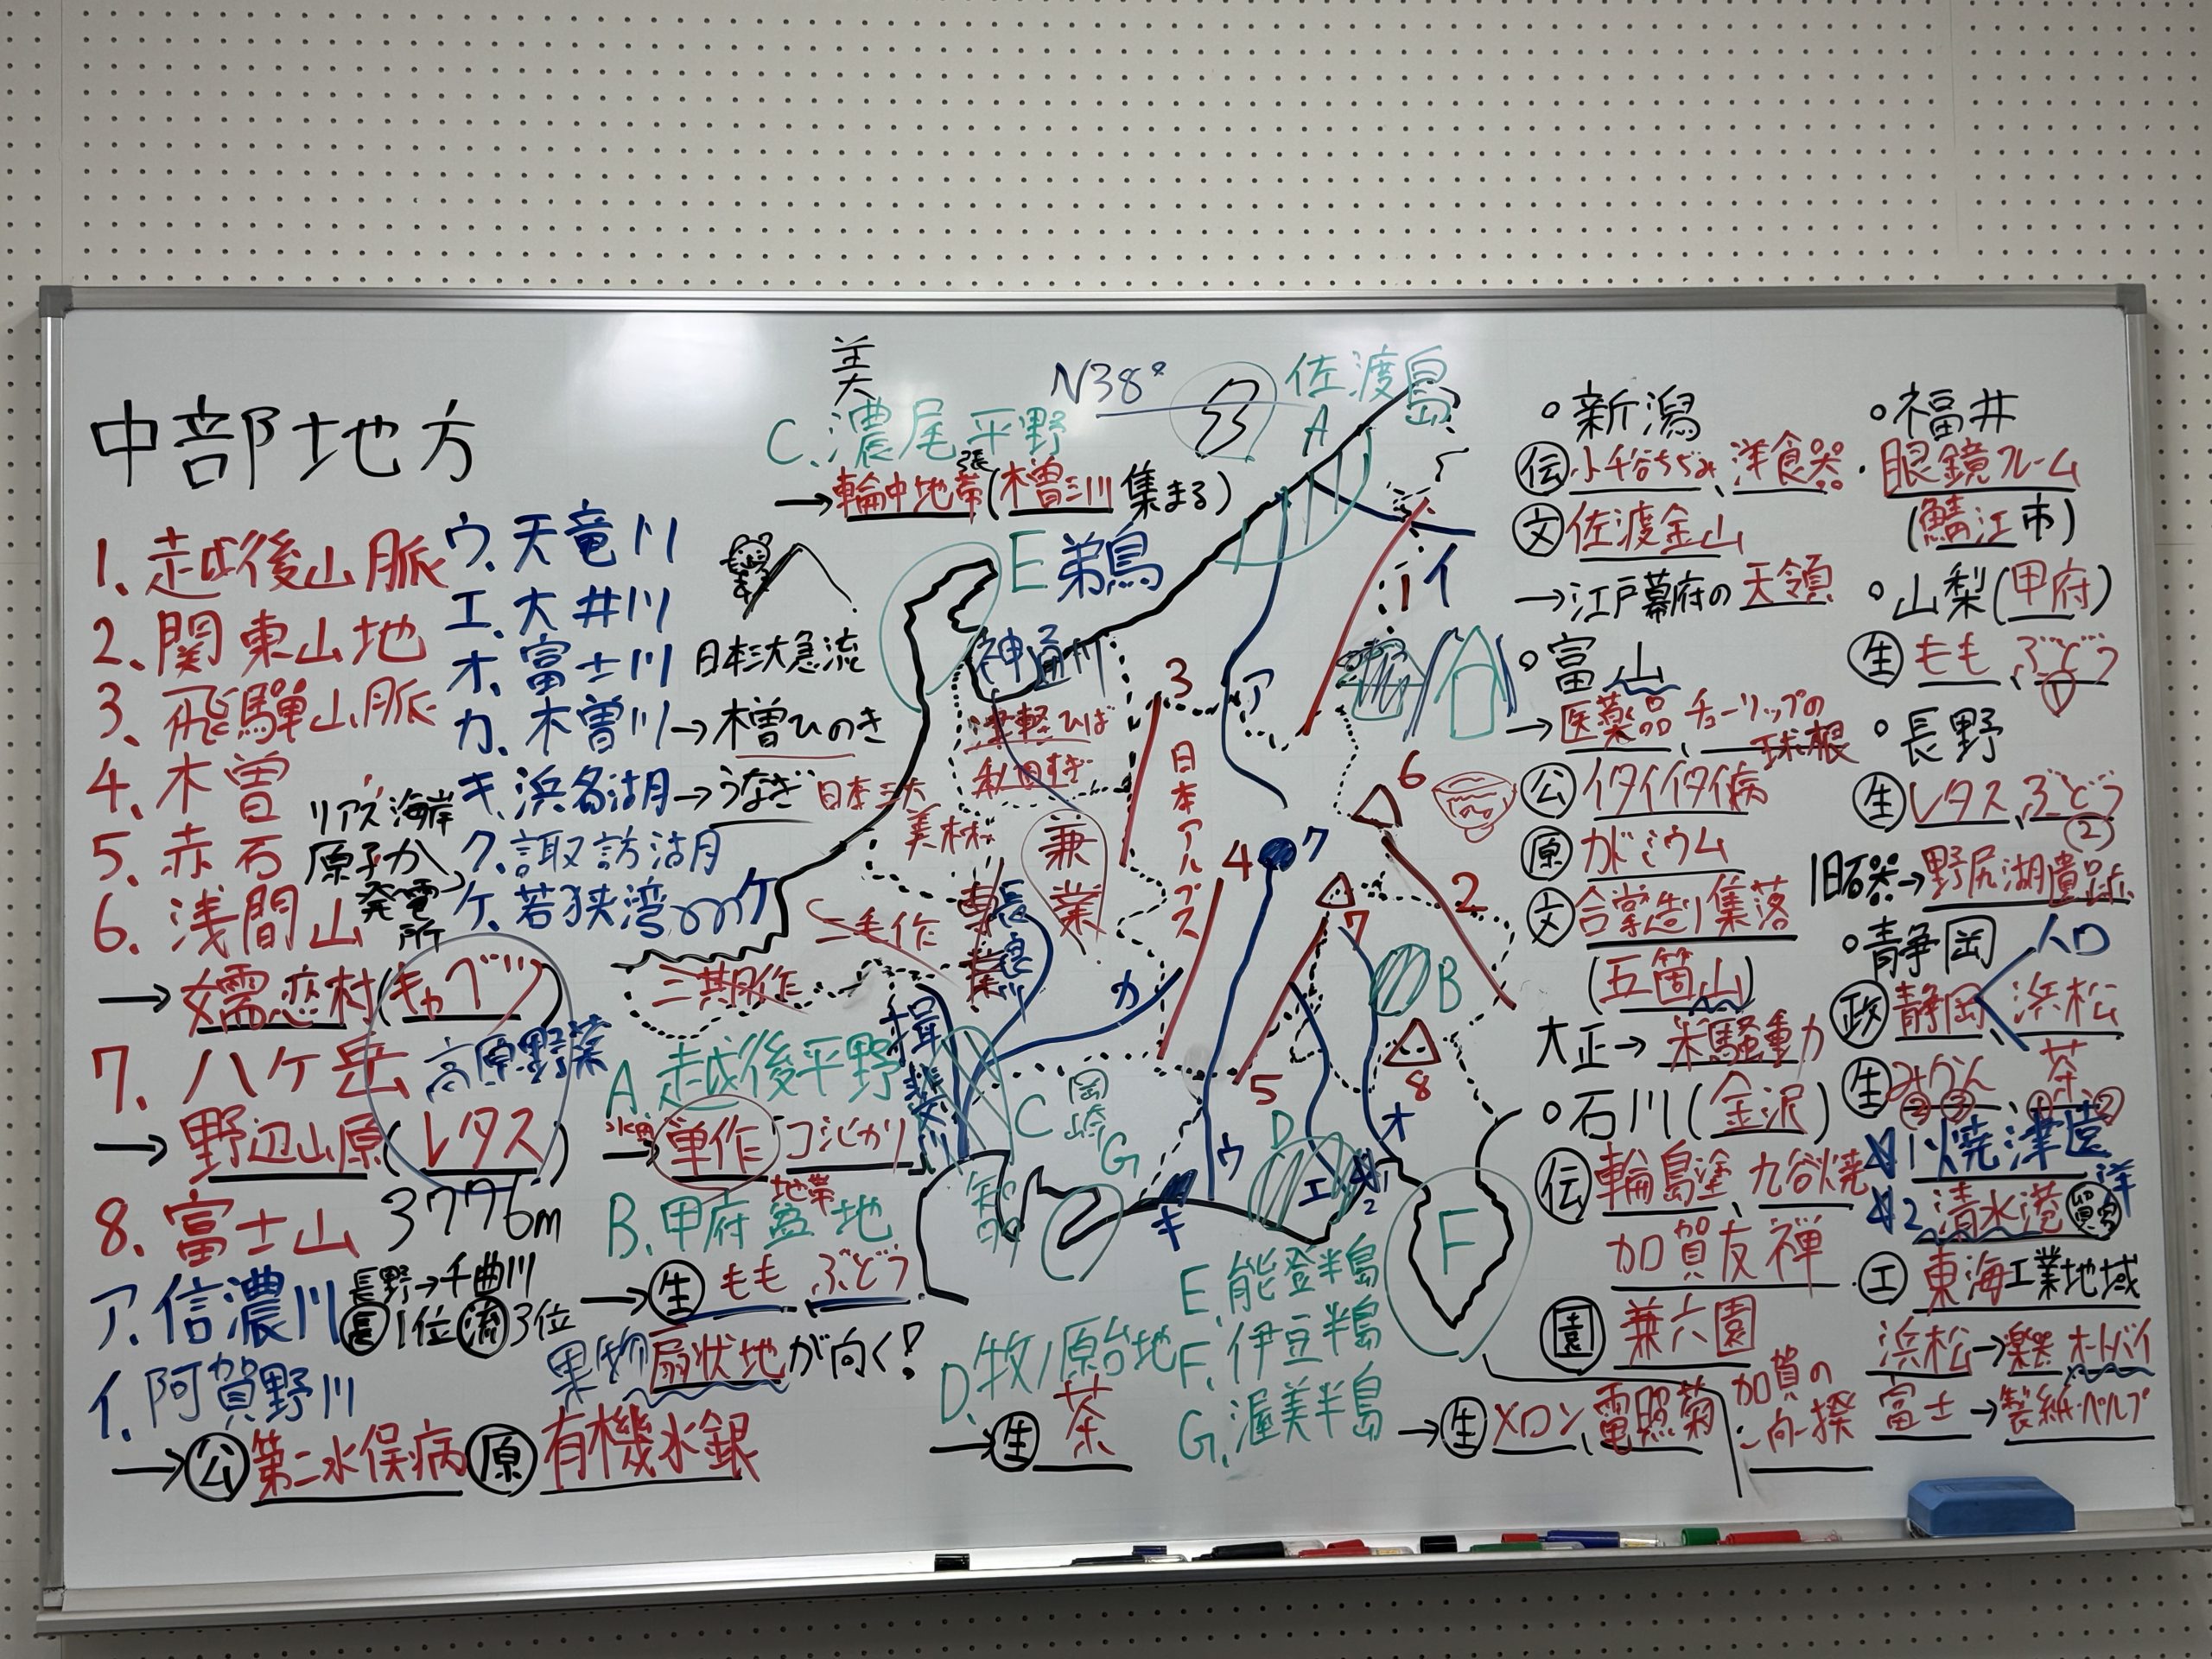 中部地方
1、越後山脈
2、関東山地
3、飛騨山脈
4、木曽
5、赤石
6、浅間山
→嬬恋村(キャベツ)
高原野菜
7、八ヶ岳
→野辺山原(レタス)
8、富士山 3776m
ア、信濃川
長野→千曲川
長1位 流3位
イ、阿賀野川
→公 第二水俣病 原 有機水銀
ウ、天竜川
エ、大井川
オ、富士川
日本三大急流
カ、木曽川→木曽ひのき
キ、浜名湖→うなぎ
ク、諏訪湖
ケ、若狭湾
リアス海岸
原子力
発電所
日本三大
美林
津軽ひば
秋田すぎ
美
C、濃尾平野
張
→輪中地帯(木曽三川集まる)
N38°
佐渡島
A
E
神通川
イ
1
ア
3
日本アルプス
兼業
二毛作
二期作
長良川
揖斐川
4
ク
6
7
2
B
カ
ケ
5
8
オ
C
岡崎
G
D
ウ
エ
キ
知多
F
A 越後平野
→単作 コシヒカリ
地帯
B、甲府盆地
→生 もも ぶどう
果物 扇状地が向く!
D、牧ノ原台地
→生 茶
E、能登半島
F、伊豆半島
G、渥美半島→生 メロン、電照菊
○新潟
伝 小千谷ちぢみ、洋食器
文 佐渡金山
→江戸幕府の天領
○富山
→医薬品、チューリップの
球根
公 イタイイタイ病
原 カドミウム
文 合掌造り集落
(五箇山)
大正→米騒動
○石川(金沢)
伝 輪島塗、九谷焼
加賀友禅
園 兼六園
加賀の
一向一揆
○福井
・眼鏡フレーム
(鯖江市)
○山梨(甲府)
生 もも、ぶどう
①
○長野
生 レタス、ぶどう
②
旧石器→野尻湖遺跡
○静岡
人口
政 静岡 浜松
生 みかん、茶
1 焼津 遠洋
2 清水港 貿易
工 東海工業地域
浜松→楽器 オートバイ
富士→製紙・パルプ